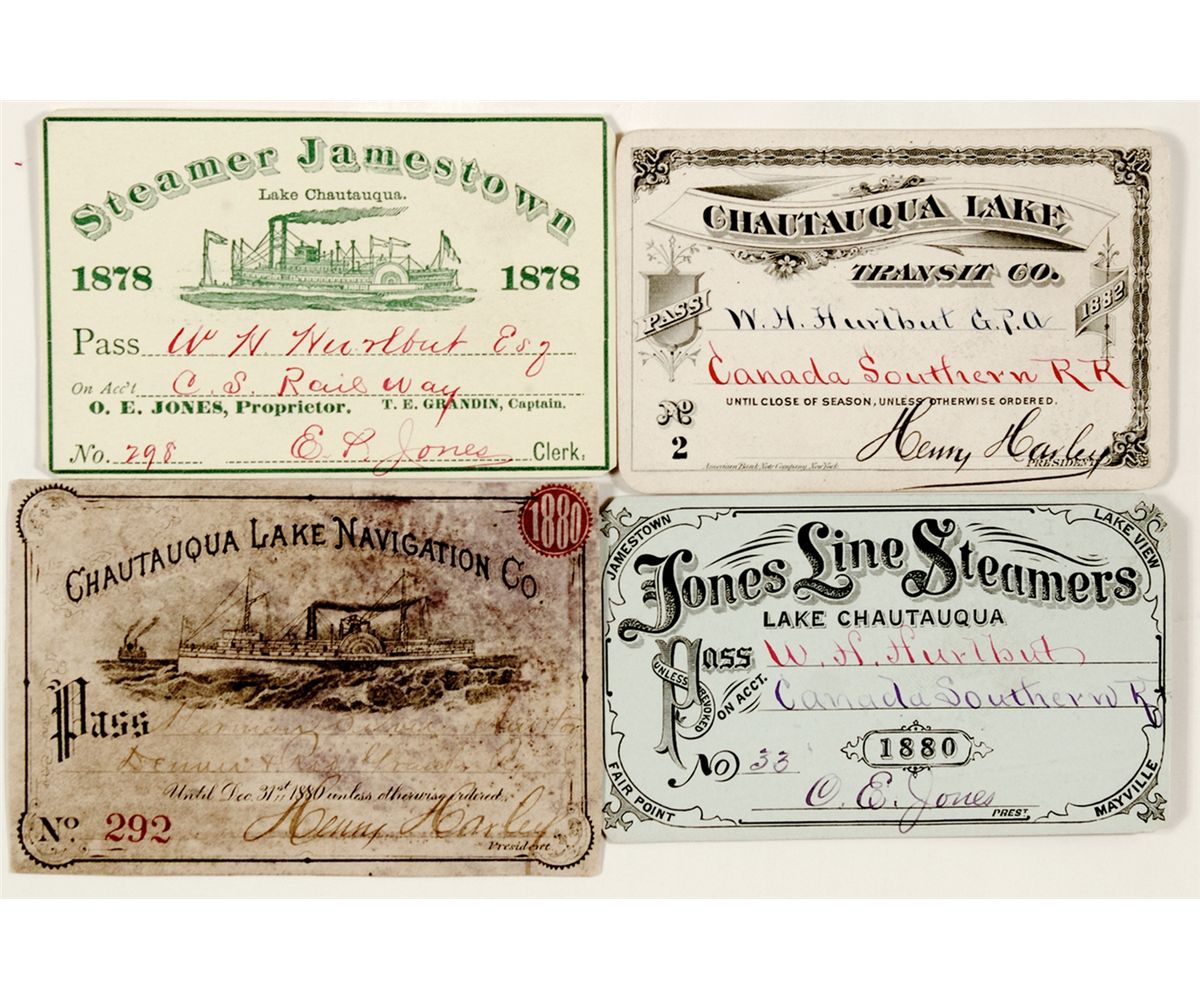 Steamer Jamestown
Lake Chautauqua.
1878 1878
Pass W H Hurlbut Esq
On Acc't C. S. Rail Way
O. E. JONES, Proprietor. T. E. GRANDIN, Captain.
No. 298 E. L. Jones Clerk.
CHAUTAUQUA LAKE
TRANSIT CO.
PASS 1882
W. H. Hurlbut G.P.A
Canada Southern R R
UNTIL CLOSE OF SEASON, UNLESS OTHERWISE ORDERED.
No 2
Henny Harley
PRESIDENT
American Bank Note Company, New York.
1880
CHAUTAUQUA LAKE NAVIGATION CO
Pass
Denver & Rio Grande
Until Dec. 31st 1880 unless otherwise ordered.
No 292 Henny Harley
President
JAMESTOWN LAKE VIEW
Jones Line Steamers
LAKE CHAUTAUQUA
Pass W. H. Hurlbut
UNLESS REVOKED
ON ACCT. Canada Southern R
No 33 1880
O. E. Jones
PREST.
FAIR POINT MAYVILLE